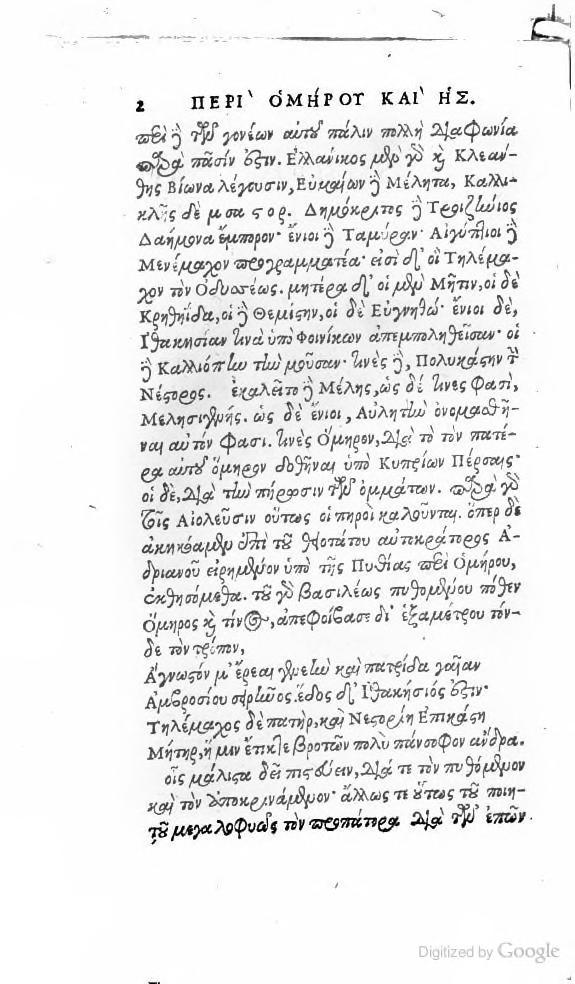 2 ΠΕΡΙ` ὉΜΉΡΟΥ ΚΑΙ` ἩΣ.
περὶ ἢ τῶν γονέων αὐτοῦ πάλιν πολλὴ διαφωνία
παρὰ πᾶσίν ἐστιν. Ἑλλάνικος μὲν γὰρ καὶ Κλεάν-
θης Βίωνα λέγουσιν, Εὐμαίων δὲ Μέλητα, Καλλι-
κλῆς δὲ μ σα ς ο ρ. Δημόκριτος δὲ Τροιζήνιος
Δαήμονα ἔμπορον· ἔνιοι δὲ Ταμύραν· Αἰγύπτιοι δὲ
Μενέμαχον προγραμματέα· εἰσὶ δ' οἳ Τηλέμα-
χον τὸν Ὀδυσσέως. μητέρα δ' οἱ μὲν Μῆτιν, οἱ δὲ
Κρηθηΐδα, οἱ δὲ Θεμίστην, οἱ δὲ Εὐγνηθώ· ἔνιοι δὲ,
Ἰθακησίαν τινὰ ὑπὸ Φοινίκων ἀπεμποληθεῖσαν· οἱ
δὲ Καλλιόπην τὴν μοῦσαν· τινὲς δὲ, Πολυκάστην τὴν
Νέστορος. ἐκαλεῖτο δὲ Μέλης, ὡς δέ τινες φασὶ,
Μελησιγενής. ὡς δὲ ἔνιοι, Αὐλητὴν ὀνομασθῆ-
ναι αὐτόν φασι. τινὲς Ὅμηρον, διὰ τὸ τὸν πατέ-
ρα αὐτοῦ ὅμηρον δοθῆναι ὑπὸ Κυπρίων Πέρσαις·
οἱ δὲ, διὰ τὴν πήρωσιν τῶν ὀμμάτων. παρὰ γὰρ
τοῖς Αἰολεῦσιν οὕτως οἱ πηροὶ καλοῦνται. ὅπερ δὲ
ἀκηκόαμεν ἐπὶ τοῦ θειοτάτου αὐτοκράτορος Ἀ-
δριανοῦ εἰρημένον ὑπὸ τῆς Πυθίας περὶ Ὁμήρου,
ἐκθησόμεθα. τοῦ γὰρ βασιλέως πυθομένου πόθεν
Ὅμηρος καὶ τίνος, ἀπεφοίβασε δι' ἑξαμέτρου τόν-
δε τὸν τρόπον,
Ἄγνωστόν μ' ἔρεαι γενεὴν καὶ πατρίδα γαῖαν
Ἀμβροσίου σειρῆνος. ἕδος δ' Ἰθακήσιός ἐστιν·
Τηλέμαχος δὲ πατὴρ, καὶ Νεστορέη Ἐπικάστη
Μήτηρ, ἥ μιν ἔτικτε βροτῶν πολὺ πάνσοφον ἄνδρα.
οἷς μάλιστα δεῖ πιστεύειν, διά τε τὸν πυθόμενον
καὶ τὸν ὑποκρινάμενον· ἄλλως τε οὕτως τοῦ ποιη-
τοῦ μεγαλοφυῶς τὸν προπάτορα διὰ τῶν ἐπῶν.
Digitized by Google